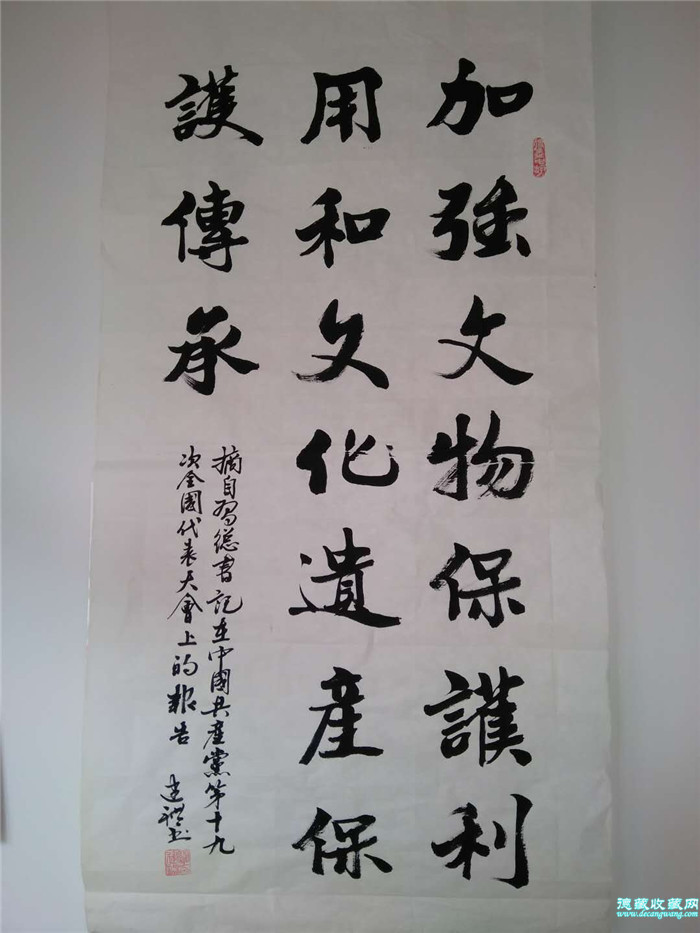 加强文物保護利
用和文化遺産保
護傳承
摘自習總書記在中國共產黨第十九
次全國代表大會上的報告
書
德藏收藏网
www.decangwang.com